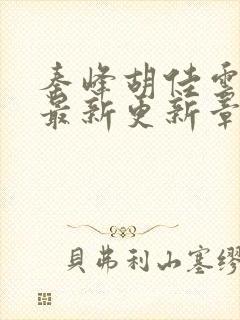 秦峰胡佳雲
最新更新章
貝弗利山塞繆